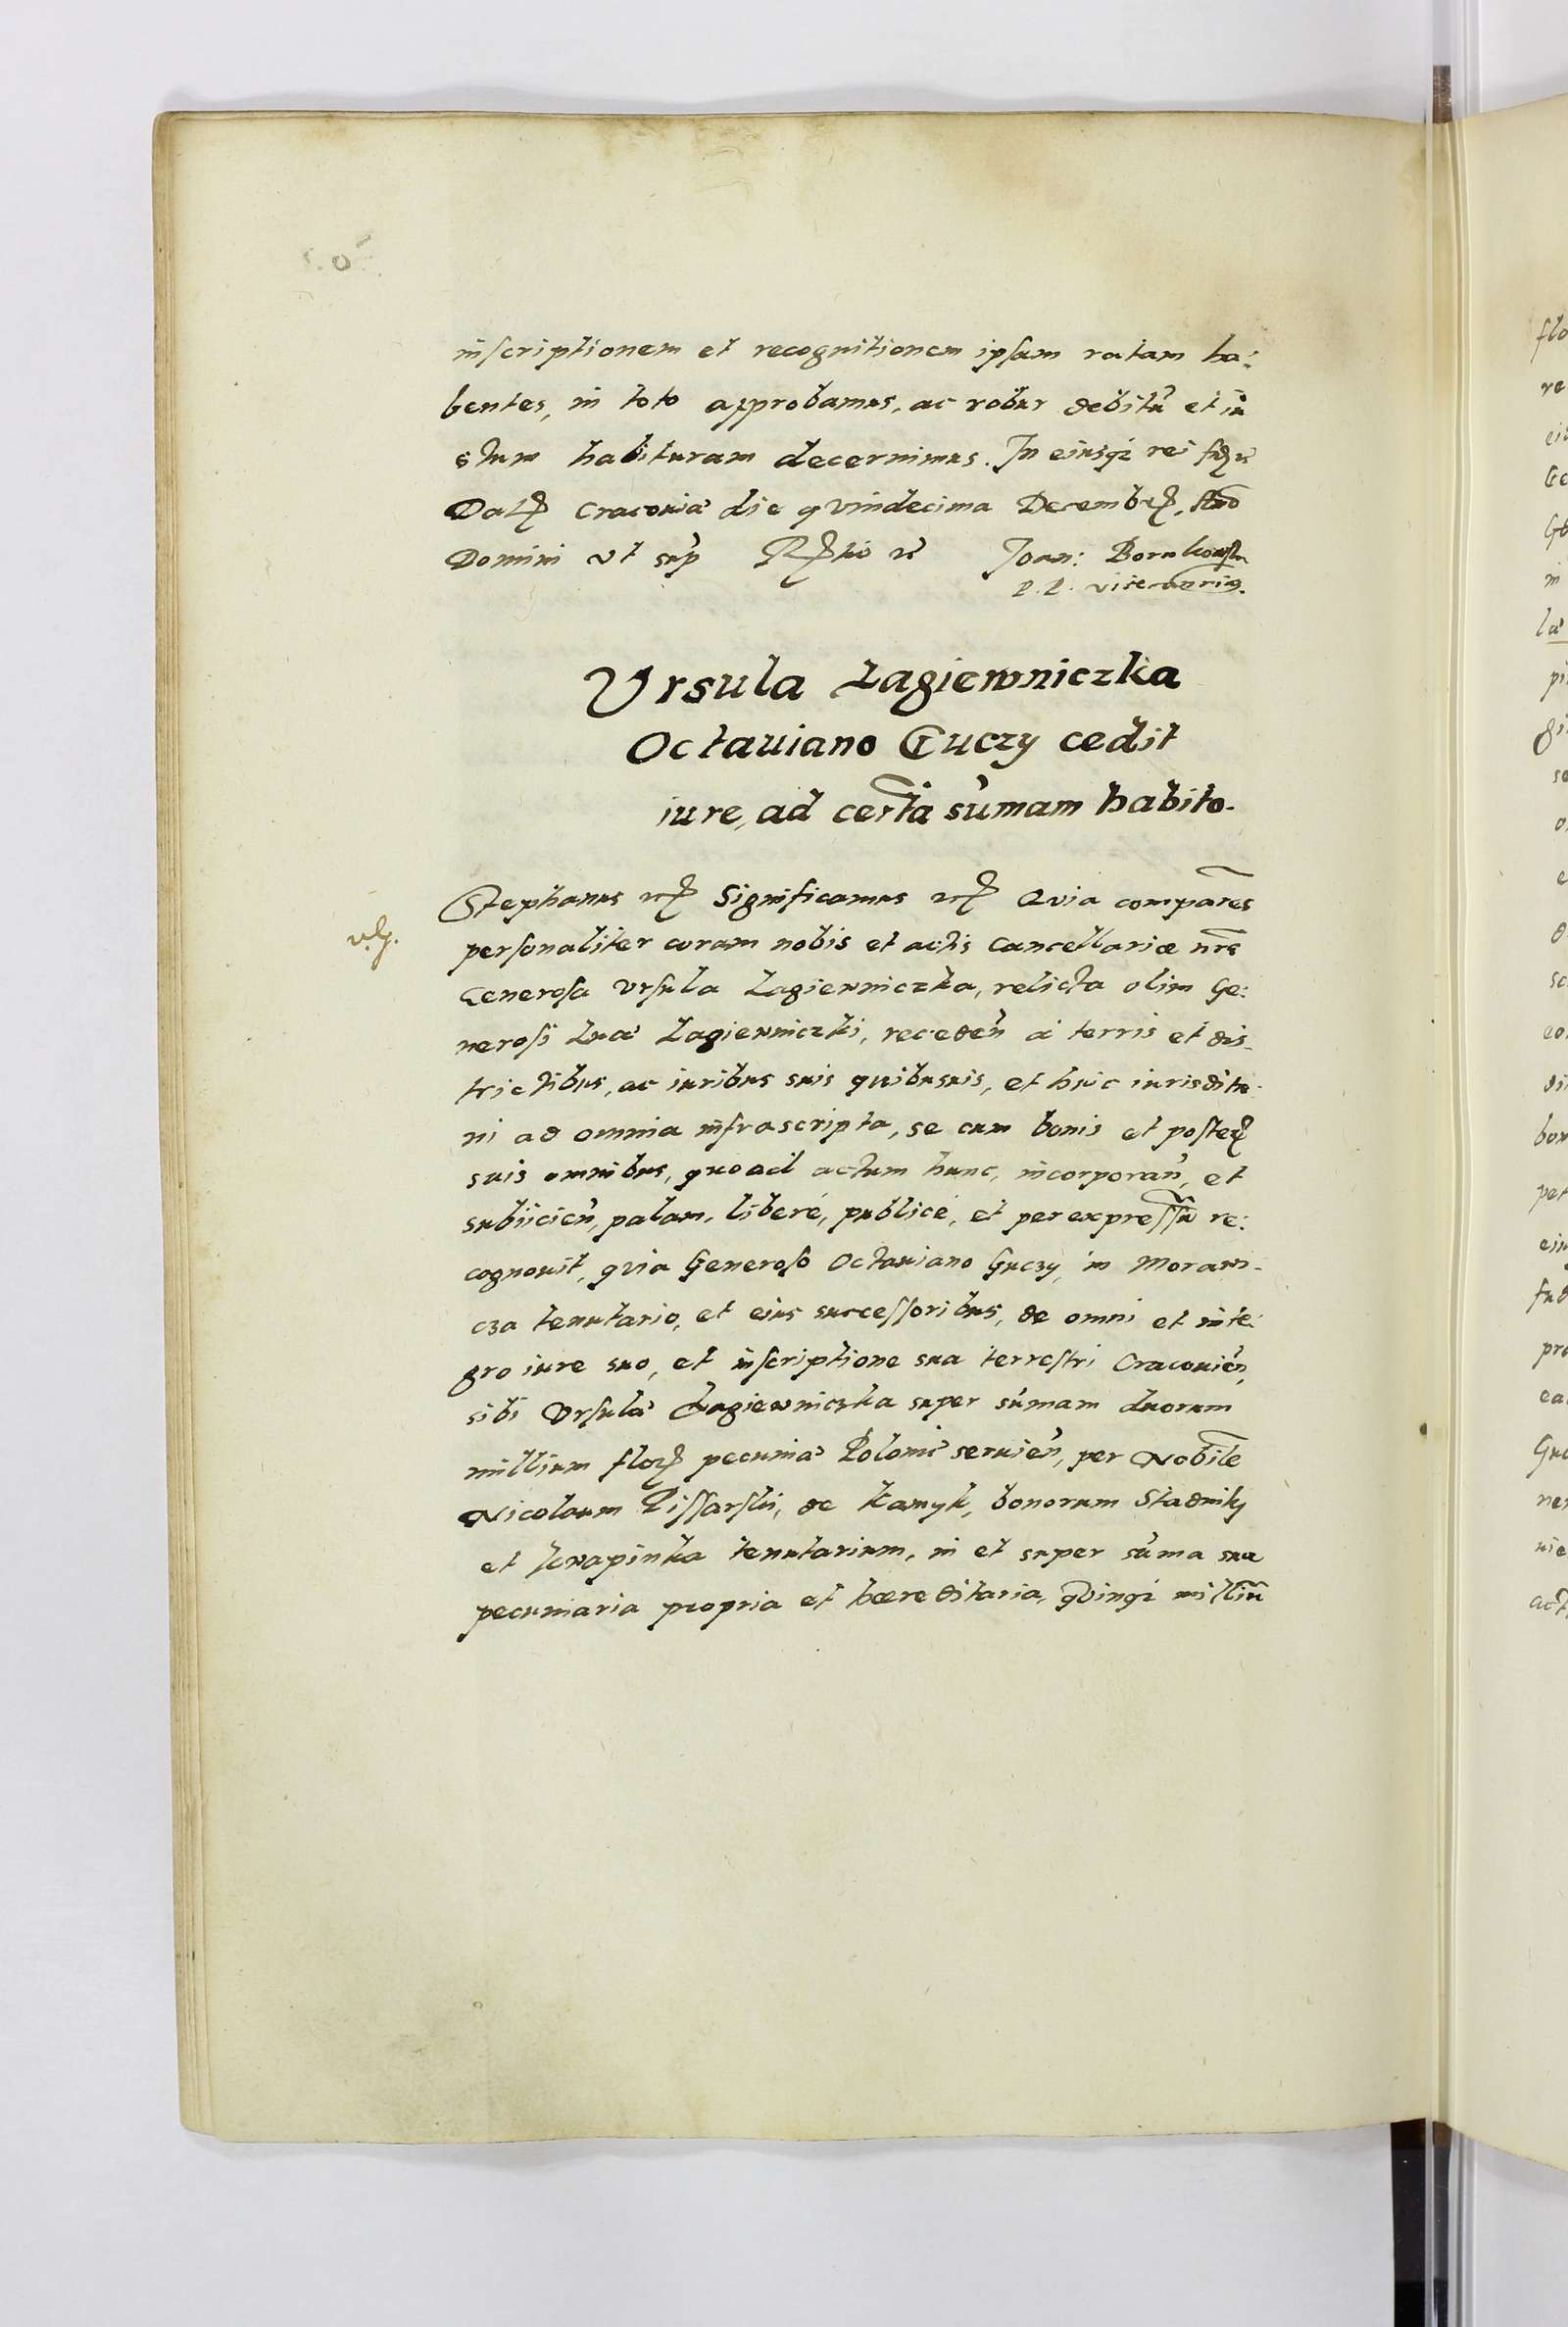 inscriptionem et recognitionem ipsam ratam ha:
bentes, in toto approbamus, ac robur debitũ et iu
stum habituram decernimus. In eiusq̃ rei
Dat̃ Cracoviæ die qvindecima Decembr̃, Anõ
Domini vt sup̃ Joan: Borukowski
P. P. vicecancriꝰ.
Vrsula Łagiewniczka
Octauiano Guczy cedit
iure, ad certã sũmam habito.
Stephanus etc̃ Significamus etc̃ Qvia comparẽs
personaliter coram nobis et actis Cancellariæ nrẽ
Generosa Vrsula Łagiewniczka, relicta olim Ge:
nerosi Lucæ Łagiewniczki, recedeñ à terris et dis-
trictibus, ac iuribus suis quibusuis, et huic iurisditio-
ni ad omnia infrascripta, se cum bonis et poster̃
suis omnibus, quoad actum hunc, incorporañ, et
subiicieñ, palam, liberé, publicé, et per expressũ re:
cognouit, qvia Generoso Octauiano Guczy, in Moraw-
cza tenutario, et eius successoribus, de omni et inte:
gro iure suo, et inscriptione sua terrestri Cracouieñ,
sibi Vrsulæ Łagiewniczka super sũmam duorum
millium flor̃ pecuniæ Polonic̃ seruieñ, per Nobilẽ
Nicolaum Pissarski, de Kamyk, bonorum Stadniky
et tenutarium, in et super sũma sua
pecuniaria propria et hæreditaria, qvinq̃ milliũ